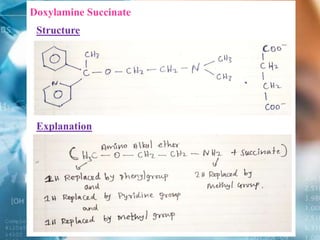 Doxylamine Succinate
Structure
CH3
C – O – CH2 – CH2 – N
CH3
CH3
N
COO⁻
CH2
CH2
COO⁻
Explanation
Amino Alkyl ether
(H3C – O – CH2 – CH2 – NH2 + Succinate)
1H Replaced by phenyl group
and
1H Replaced by Pyridine group
and
1H Replaced by methyl group
2H Replaced by
Methyl Group.